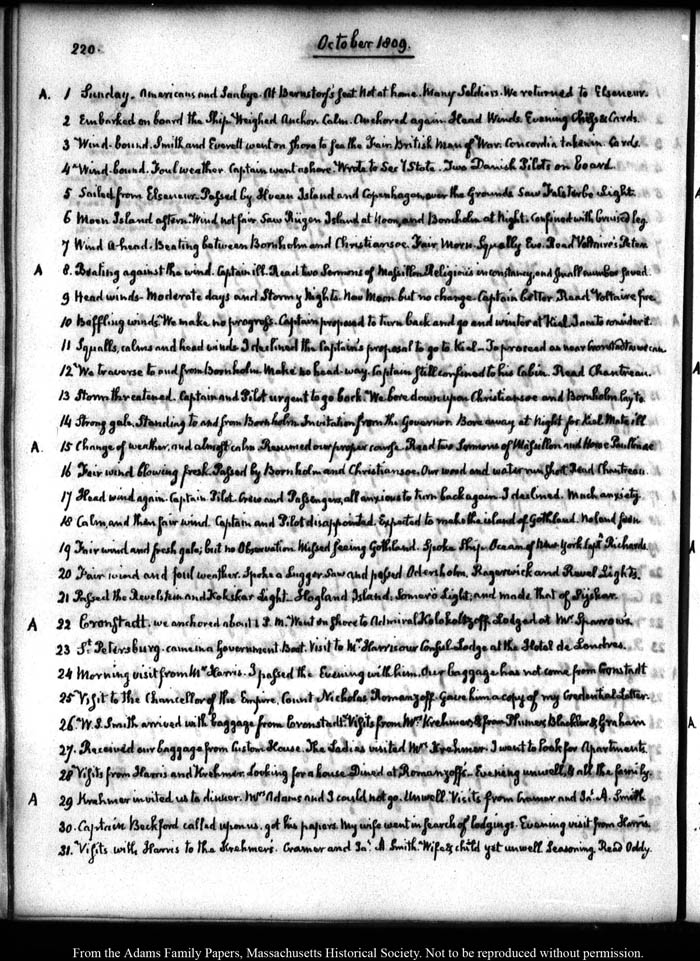 220.
October 1809.
A. 1 Sunday. Americans and at Bernstorf's seat Not at home. Many Soldiers. We returned to Elseneur.
2 Embarked on board the Ship. Weighed Anchor. Calm. Anchored again. Head Winds. Evening Chess & Cards.
3 Wind-bound. Smith and Everett went on shore to see the Fair. British Man of War. Concordia taken in. Cards.
4 Wind-bound. Foul weather. Captain went ashore. Wrote to Sec'y State. Two Danish Pilots on board.
5 Sailed from Elseneur. Passed by Hveen Island and Copenhagen, over the Grounds. Saw Falsterbo Light.
6 Moen Island aftern. Wind not fair. Saw Rügen Island at Noon, and Bornholm at Night. Confined with bruised leg.
7 Wind a-head. Beating between Bornholm and Christiansoe. Fair Morn. Squally Eve. Read Voltaire's Peter.
A 8. Beating against the wind. Captain ill. Read two Sermons of Massillon. Religion's inconstancy, and small number saved.
9 Head winds. Moderate days and Stormy Nights. New Moon but no change. Captain better. Read Voltaire
10 Baffling winds. We make no progress. Captain proposed to turn back and go and winter at Kiel. I am to consider it.
11 Squalls, calms and head winds. I declined the Captain's proposal to go to Kiel. To proceed as near Cronstadt as we can.
12 We traverse to and from Bornholm. Make no head-way. Captain still confined to his Cabin. Read Chantreau.
13 Storm threatened. Captain and Pilot urgent to go back. We bore down upon Christiansoe and Bornholm. Lay to
14 Strong gale. Standing to and from Bornholm. Invitation from the Governor. Bore away at Night for Kiel. Mate ill
A. 15 Change of weather, and almost calm. Resumed our proper course. Read two Sermons of Massillon and Horae Paulinae
16 Fair wind blowing fresh. Passed by Bornholm and Christiansoe. Our wood and water run short. Read Chantreau.
17 Head wind again. Captain, Pilot, Crew and Passengers, all anxious to turn back again. I declined. Much anxiety.
18 Calm, and then fair wind. Captain and Pilot disappointed. Expected to make the island of Gothland. No land seen
19 Fair wind and fresh gale; but no Observation. Missed seeing Gothland. Spoke Ship Ocean of New York Capt. Richards
20 Fair wind and foul weather. Spoke a Lugger. Saw and passed Odensholm, Ragerwick and Revel Lights.
21 Passed the Revelstein and Kokskar Light. Hogland Island. Somero Light; and made that of
A 22 Cronstadt. We anchored about 1 P.M. Went on Shore to Admiral Kolokoltzoff. Lodged at Mr. Sparrow's.
23 St. Petersburg. Came in a Government Boat. Visit to Mr. Harris our Consul. Lodge at the Hotel de Londres.
24 Morning visit from Mr. Harris. I passed the Evening with him. Our baggage has not come from Cronstadt
25 Visit to the Chancellor of the Empire, Count Nicholas Romanzoff. Gave him a copy of my Credential Letter.
26. W. S. Smith arrived with baggage from Cronstadt. Visits from Mr. Krehmer, & from Plumer, Blackler & Graham
27. Received our baggage from Custom House. The Ladies visited Mrs. Krehmer. I went to look for Apartments.
28 Visits from Harris and Krehmer. Looking for a house. Dined at Romanzoff's. Evening unwell, & all the family.
A 29 Krehmer invited us to dinner. Mrs. Adams and I could not go. Unwell. Visits from Cramer and Js. A. Smith
30. Captain Beckford called upon us. Got his papers. My wife went in search of lodgings. Evening visit from Harris.
31. Visits with Harris to the Krehmers. Cramer and Js. A. Smith. Wife & child yet unwell. Seasoning. Read Oddy.
From the Adams Family Papers, Massachusetts Historical Society. Not to be reproduced without permission.